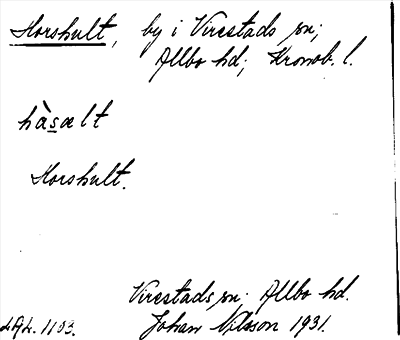 Horshult, by i Virestads sn;
Allbo hd; Kronob. l.
hàsælt
Horshult.
Virestads sn; Allbo hd.
Johan Nilsson 1931.